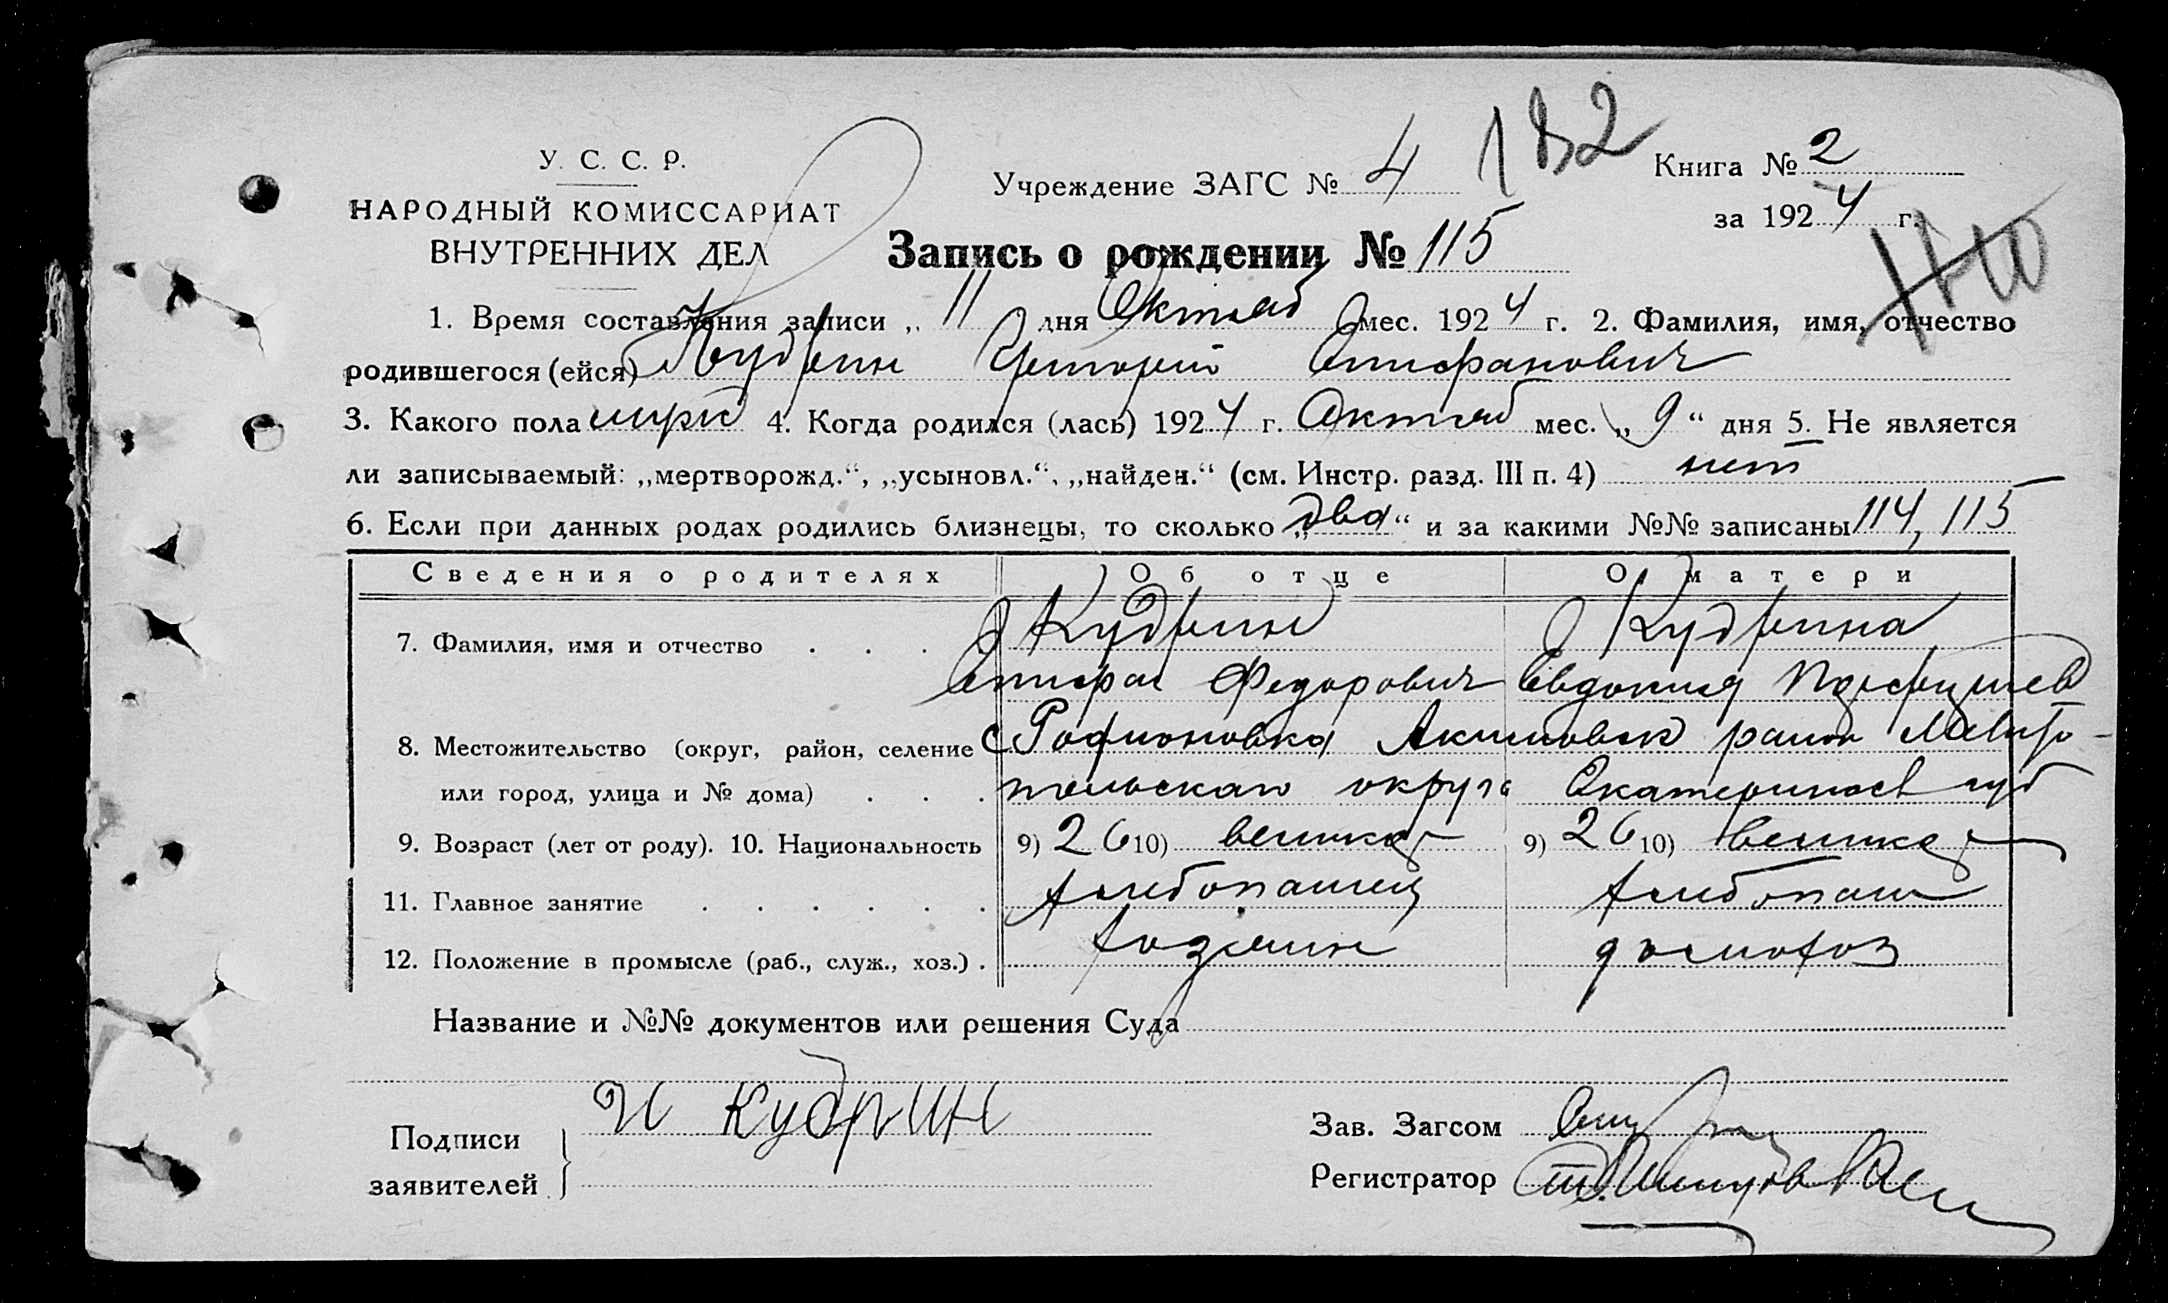 У. С. С. Р.
НАРОДНЫЙ КОМИССАРИАТ
ВНУТРЕННИХ ДЕЛ
Учреждение ЗАГС № 4
182
Книга № 2
за 1924 г.
Запись о рождении № 115
1. Время составления записи „ 11 дня Октяб мес. 1924 г. 2. Фамилия, имя, отчество
родившегося (ейся) Кудрин Григорий Епифанович
3. Какого пола 4. Когда родился (лась) 1924 г. Октяб мес. „ 9 “ дня 5. Не является
ли записываемый: „мертворожд.“, „усыновл.“, „найден.“ (см. Инстр. разд. III п. 4) нет
6. Если при данных родах родились близнецы, то сколько „два“ и за какими №№ записаны 114, 115
Сведения о родителях Об отце О матери
7. Фамилия, имя и отчество . . . Кудрин Кудрина
Епифан Федорович Евдокия
8. Местожительство (округ, район, селение С. Родионовка Акимовск район Мелито-
или город, улица и № дома) . . . польскаго округа Екатеринослав губ
9. Возраст (лет от роду). 10. Национальность 9) 26 10) великор 9) 26 10) великор
11. Главное занятие . . . . . . Хлебопашец Хлебопаш
12. Положение в промысле (раб., служ., хоз.) . хозяин домохоз
Название и №№ документов или решения Суда
Подписи
заявителей
И Кудрин
Зав. Загсом
Регистратор